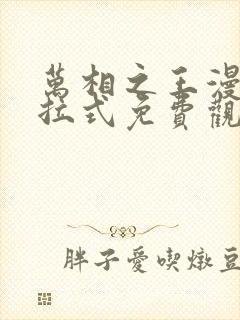 萬相之王漫
拉式免費觀
胖子愛喫燉豆